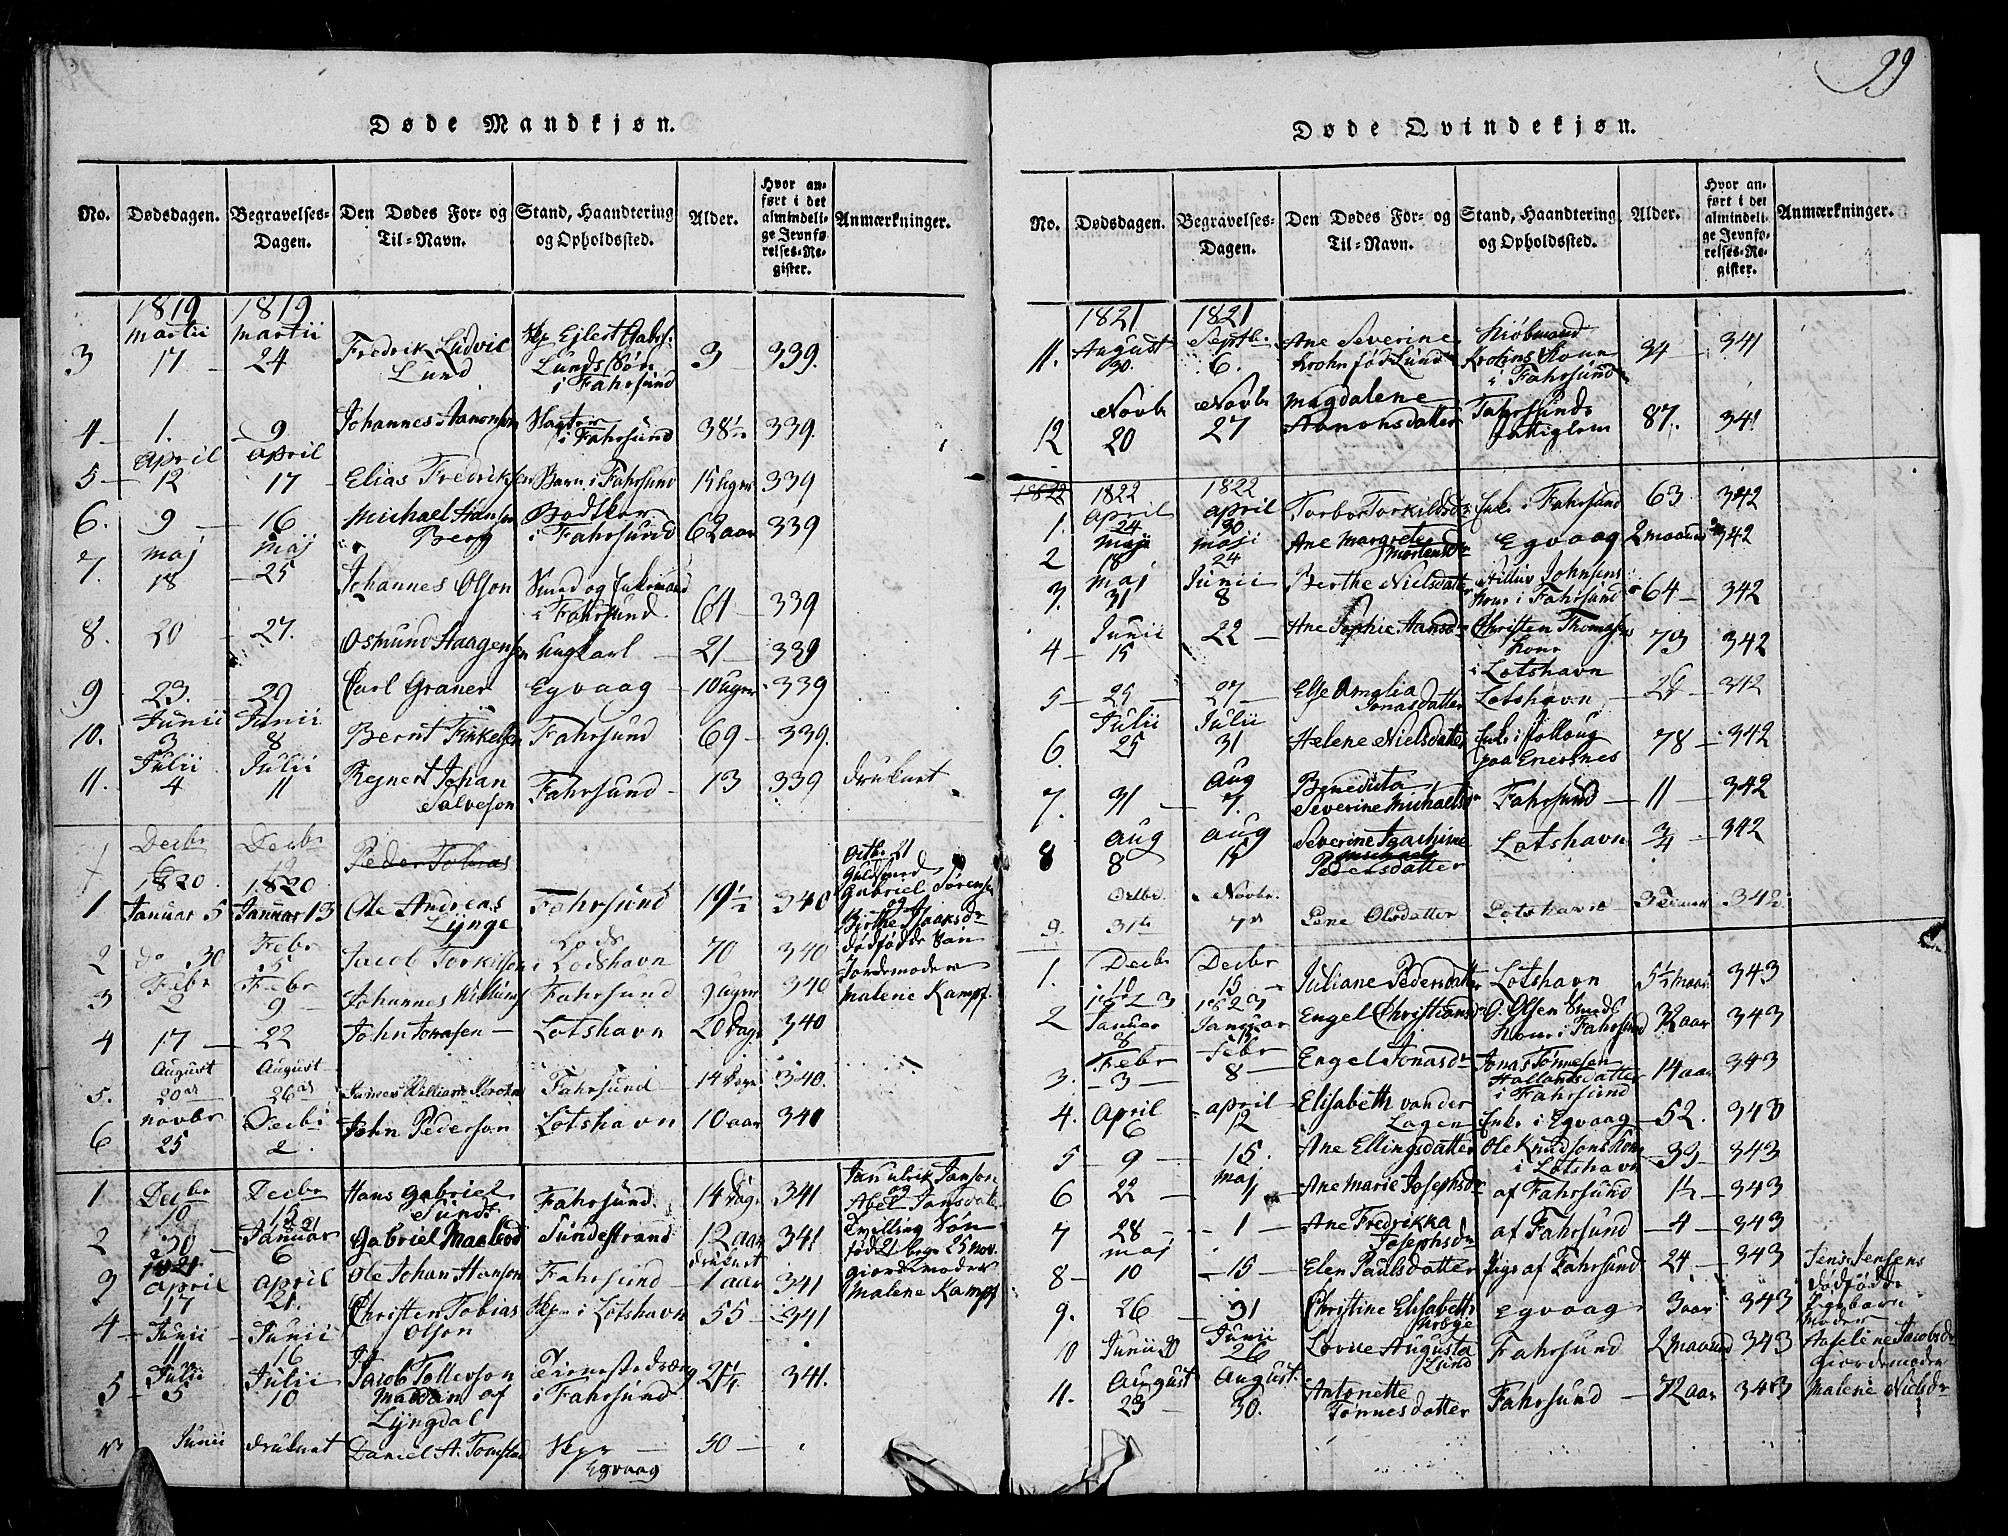 99
Døde Mandkjøn.
No. Dødsdagen. Begravelses-Dagen. Den Dødes For- og Til-Navn. Stand, Haandtering og Opholdssted. Alder. Hvor anført i det almindelige Jevnførelses-Register. Anmærkninger.
1819 1819
3 Martii 17 Martii 24 Fredrik Ludvig Lund Lunds Søn i Fahrsund 3 339.
4 1. 9 Johannes Aanonsen i Fahrsund 38½ 339.
5 April 12 April 17 Elias Fredriksen Barn i Fahrsund 15 Uger 339
6. 9 16 Michael Hansen Berg Bødker i Fahrsund 62 aar 339
7. Maj 18 Maj 25 Johannes Olson i Fahrsund 64 339
8. 20 27. Osmund Haagensen Ungkarl 21 339
9 23. 29 Carl Graner Egvaag 10 Uger 339
10. Junii 3 Junii 8 Bernt Finkelsen Fahrsund 69 339.
11. Julii 4 Julii 11 Rejnert Johan Salveson Fahrsund 13 339 druknet
Decbr 6 Decbr 12 Peder Tobias
1820. 1820
1 Januar 5 Januar 13 Ole Andreas Lynge Fahrsund 19½ 340
2 do 30 Febr 5 Jacob Torkilson Lods i Lodshavn 70 340
3 Febr 2 Febr 9 Johannes Willums Fahrsund 9 Uger 340
4 17 22 John Jonasen Lotshavn 20 Dage 340
5. August 20de August 26de Fahrsund 14 Dage 340.
6 Novbr 25 Decbr 2. John Pederson Lotshavn 10 aar 341
Octbr 21
Gabriel Sørensen
og
Birthe Isaksdr
dødfødde Søn
Jordemoder
Malene Kampf
1 Decbr 10 Decbr 15 Hans Gabriel Sundt Fahrsund. 14 Dage 341
2 30 1821 Januar 6 Gabriel Maaløe Sundestrand 12 aar druknet 341
1821
3 April 17 April 21. Ole Johan Hanson Fahrsund 1 aar 341
4 Junii 11 Junii 16 Christen Tobias Olson i Lotshavn 55 341
5 Julii 5 Julii 10 Jacob Tollevson af Lyngdal i Fahrsund 21¼ 341.
Junii druknet Daniel A. Egvaag 50
Jan Ulrik Janson
og
Abel Jansdatter
Tvilling Søn
fødde 25 Nov.
Giordemoder
Malene Kampf
Døde Qvindekjøn.
No. Dødsdagen. Begravelses-Dagen. Den Dødes For- og Til-Navn. Stand, Haandtering og Opholdssted. Alder. Hvor anført i det almindelige Jevnførelses-Register. Anmærkninger.
1821 1821
11. August 30. Septbr 6. Ane Severine Krohn fød Lund Kiøbmand Krohns Kone i Fahrsund 34 341
12 Novbr 20 Novbr 27 Magdalene Aanonsdatter Fahrsunds fattiglem 87. 341
1822 1822 1822
1. April 24 April 30 Torbor Torkildsdr Enke i Fahrsund 63 342
2 Maji 18 Maji 24 Ane Margrete Mortensdr Egvaag 2 maaned 342
3. Maj 31 Junii 8 Berthe Nielsdatter Johnsens Kone i Fahrsund 64 342
4 Junii 15 22 Ane Sophie Hansdr Christen Thomasens Kone i Lotshavn 73 342
5 25 27 Else Amalia Jonasdatter Lotshavn 342
6. Julii 25 Julii 31 Helene Nielsdatter Enke i paa Enersnes 78 342
7. 31 Aug 7. Benedicta Severine Michaelsdr Fahrsund 11 342
8 Aug 8 Aug 15 Severine Pedersdatter Lotshavn ¾ 342
9. Octbr. 31te Novbr. 7de Lene Olsdatter Lotshavn 342
1. Decbr 10 Decbr 15 Juliane Pedersdatter Lotshavn 5½ maan 343
1823 1823
2 Januar 8 Januar Engel Christiansdr O. Olsen Smeds Kone i Fahrsund 32 aar 343
3. Febr 3 Febr 8 Engel Jonasdr Jonas Tønnesen Hollands datter i Fahrsund 14 aar 343
4. April 6 April 12 Elisabeth von der Lagen Enke i Egvaag 52. 343
5 9 15. Ane Ellingsdatter Ole Knudsons Kone i Lotshavn 33 343
6 22 Maj 1 Ane Marie Josephsdr af Fahrsund 343
7 28 1 Ane Fredrikka Josephsdr af Fahrsund 4 343
8 Maj 10 15 Elen Paulsdatter Pige af Fahrsund 24 343
9. 26 31 Christine Elisabeth Egvaag 3 aar 343
10 Junii Junii 26 Lovise Augusta Lund Fahrsund 2 maaned 343
11. August 23 August 30. Antonette Tønnesdatter Fahrsund 72 aar 343
Jens Jensens
dødfødde
Pigebarn
Moder
Jacobsdr
Giordemoder
Malene Nielsdr